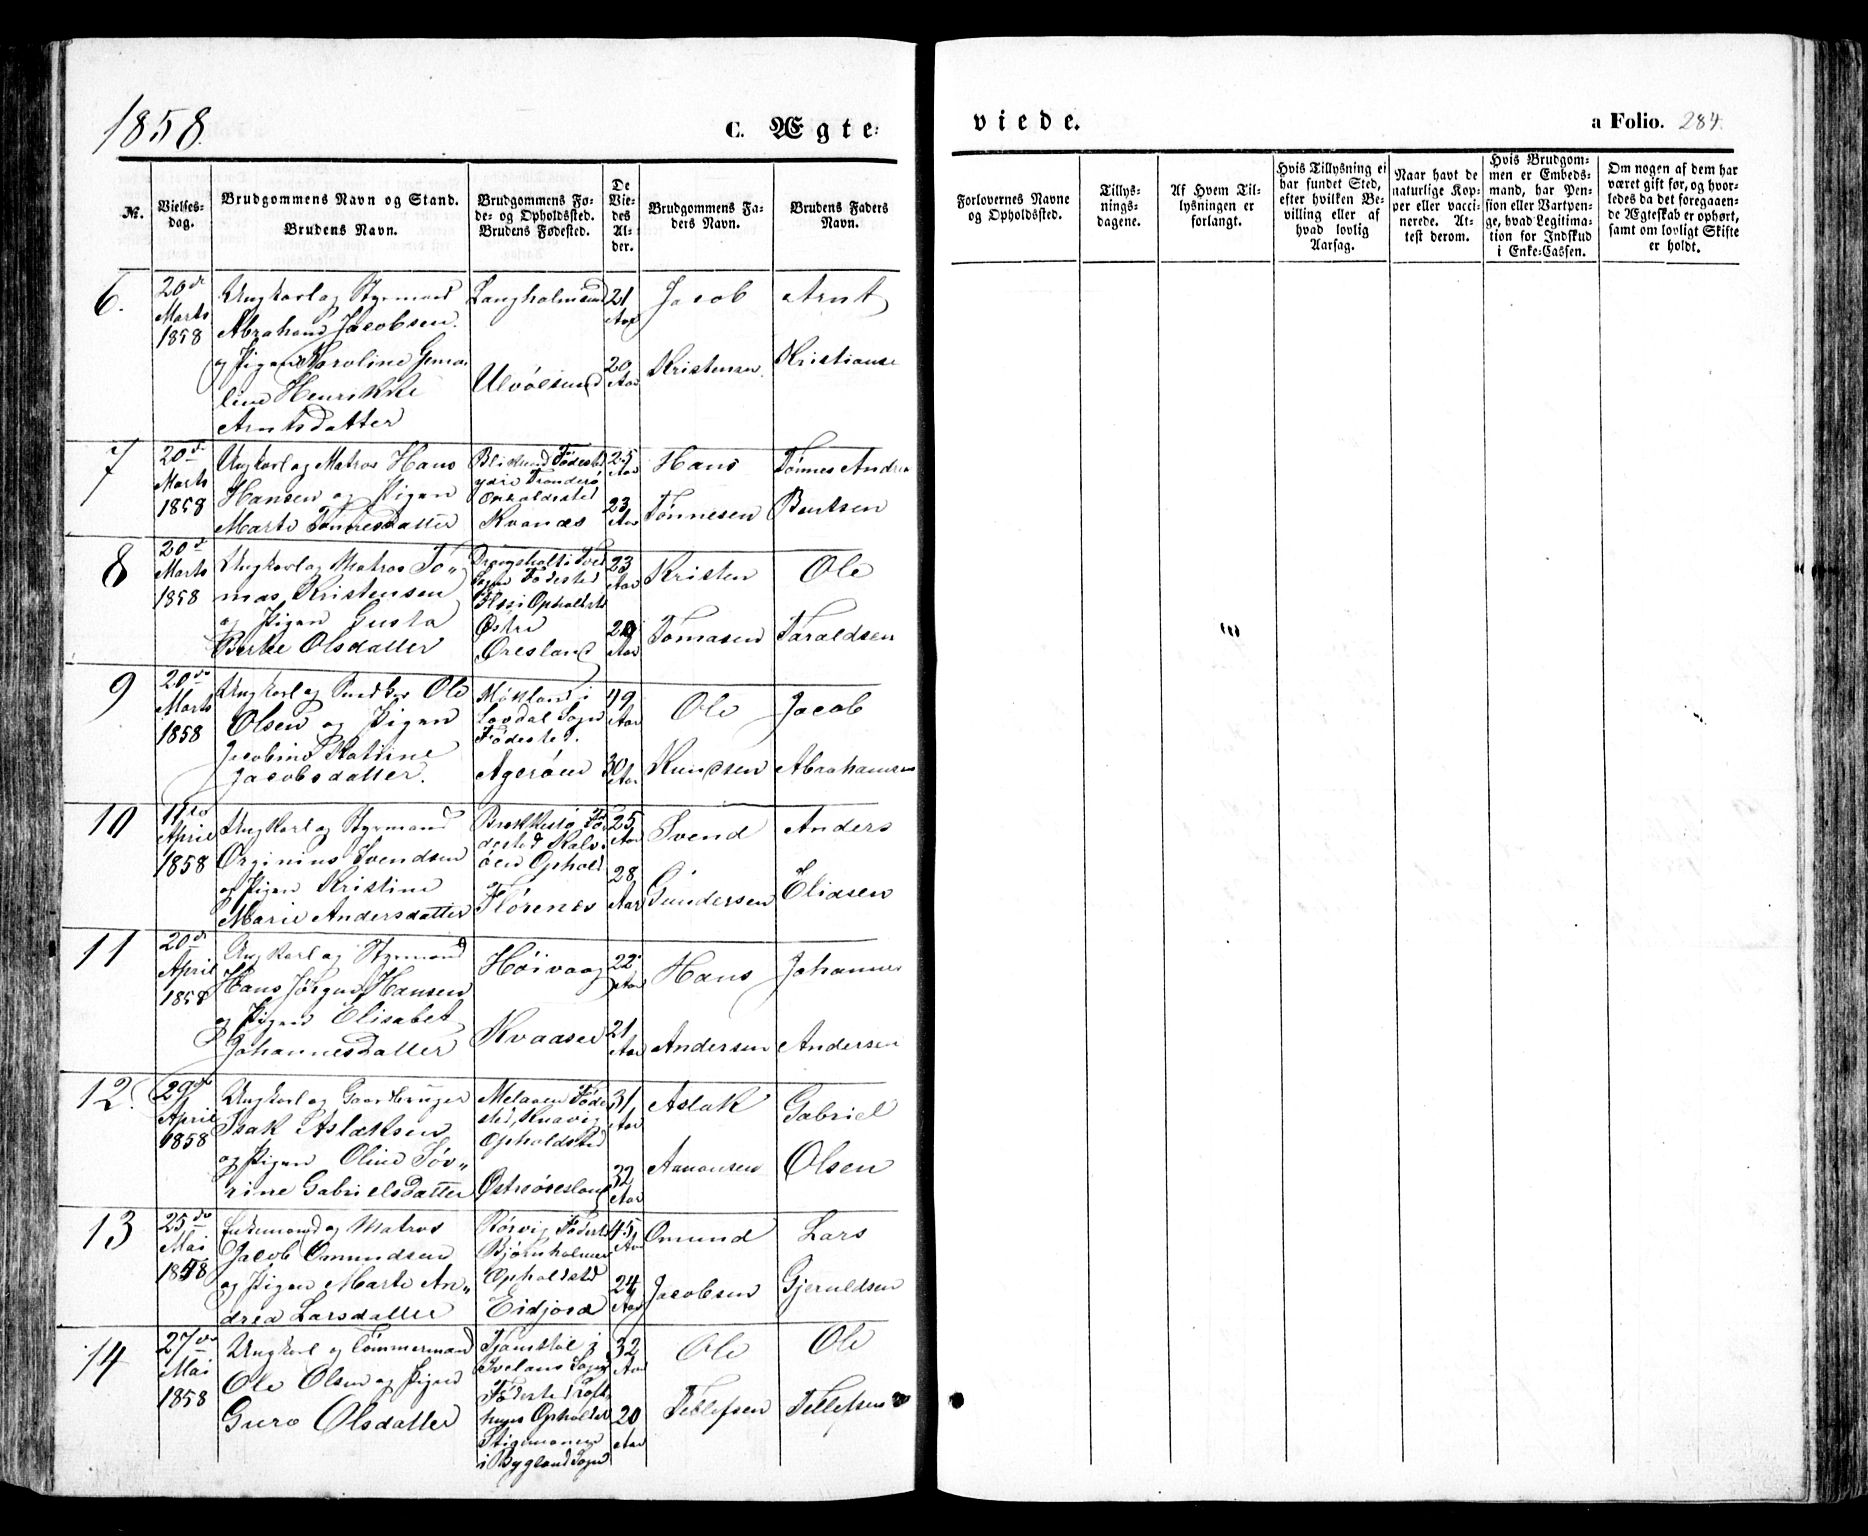 1858.
C. Ægte-
viede.
a Folio. 284.
№.
Vielses-
dag.
Brudgommens Navn og Stand.
Brudens Navn.
Brudgommens Fø-
de- og Opholdssted.
Brudens Fødested.
De
Vie-
des
Al-
der.
Brudgommens Fa-
ders Navn.
Brudens Faders
Navn.
Forlovernes Navne
og Opholdssted.
Tillys-
nings-
dagene.
Af Hvem Til-
lysningen er
forlangt.
Hvis Tillysning ei
har fundet Sted,
efter hvilken Be-
villing eller af
hvad lovlig
Aarsag.
Naar havt de
naturlige Kop-
per eller vacci-
nerede. At-
test derom.
Hvis Brudgom-
men er Embeds-
mand, har Pen-
sion eller Vartpen-
ge, hvad Legitima-
tion for Indskud
i Enke-Cassen.
Om nogen af dem har
været gift før, og hvor-
ledes da det foregaaen-
de Ægteskab er ophørt,
samt om lovligt Skifte
er holdt.
6.
20de
Marts
1858
Ungkarl og Styrmand
Abraham Jacobsen
og Pigen Karoline
Henrikke
Arntsdatter
Langholmsund
Ulvøesund
21
Aar
20
Aar
Jacob
Kristensen
Arnt
Kristianse
7
20de
Marts
1858
Ungkarl og Matros Hans
Hansen og Pigen
Marte Tønnesdatter
Bliksund Fødested
ydre
Opholdssted
Kvanæs
25
Aar
23
Aar
Hans
Tønnesen
Tønnes Andre
Bentsen
8
20de
Marts
1858
Ungkarl og Matros To„
mas Kristensen
og Pigen Gusta
Berte Olsdatter
Drangsholt i Tved
Sogn Fødested
Opholdssted
Østre
Øresland
23
Aar
20
Aar
Kristen
Tomasen
Ole
Taraldsen
9
20de
Marts
1858
Ungkarl og Ole
Olsen og Pigen
Jacobine Katrine
Jacobsdatter.
i
Sogn
Fødested.
Agerøen
49
Aar
30
Aar
Ole
Knudsen
Jacob
Abrahamsen
10
11te
April
1858
Ungkarl og Styrmand
Orginius Svendsen
og Pigen Kristine
Marie Andersdatter
Brækkestø Fø
dested Kalv
øen Ophold
Flørenes
25
Aar
28
Aar
Svend
Gundersen
Anders
Eliasen
11
20de
April
1858
Ungkarl og Styrmand
Hans Jørgen Hansen
og Pigen Elisabet
Johannesdatter
Høivaag
Kvaase
22
Aar
21
Aar
Hans
Andersen
Johannes
Andersen
12.
29de
April
1858
Ungkarl og Gaardbruger
Isak Aslaksen
og Pigen Oline Søv„
rine Gabrielsdatter
Fødes
sted,
Opholdsted
Østreøresland
31
Aar
32
Aar
Aslak
Aanonsen
Gabriel
Olsen
13
25de
Mai
1858
Enkemand og Matros
Jacob Omundsen
og Pigen Marte An„
drea Larsdatter
Rørvig Fødested
Bjørnholmen
Opholdsted
Eidjord
45
Aar
24
Aar
Omund
Jacobsen
Lars
Gjeruldsen
14
27de
Mai
1858
Ungkarl og Tømmermand
Ole Olsen og Pigen
Guro Olsdatter
i
Ivelands Sogn
Fødested
Opholdsted
i Bygland Sogn
32
Aar
20
Aar
Ole
Tellefsen
Ole
Tellefsen